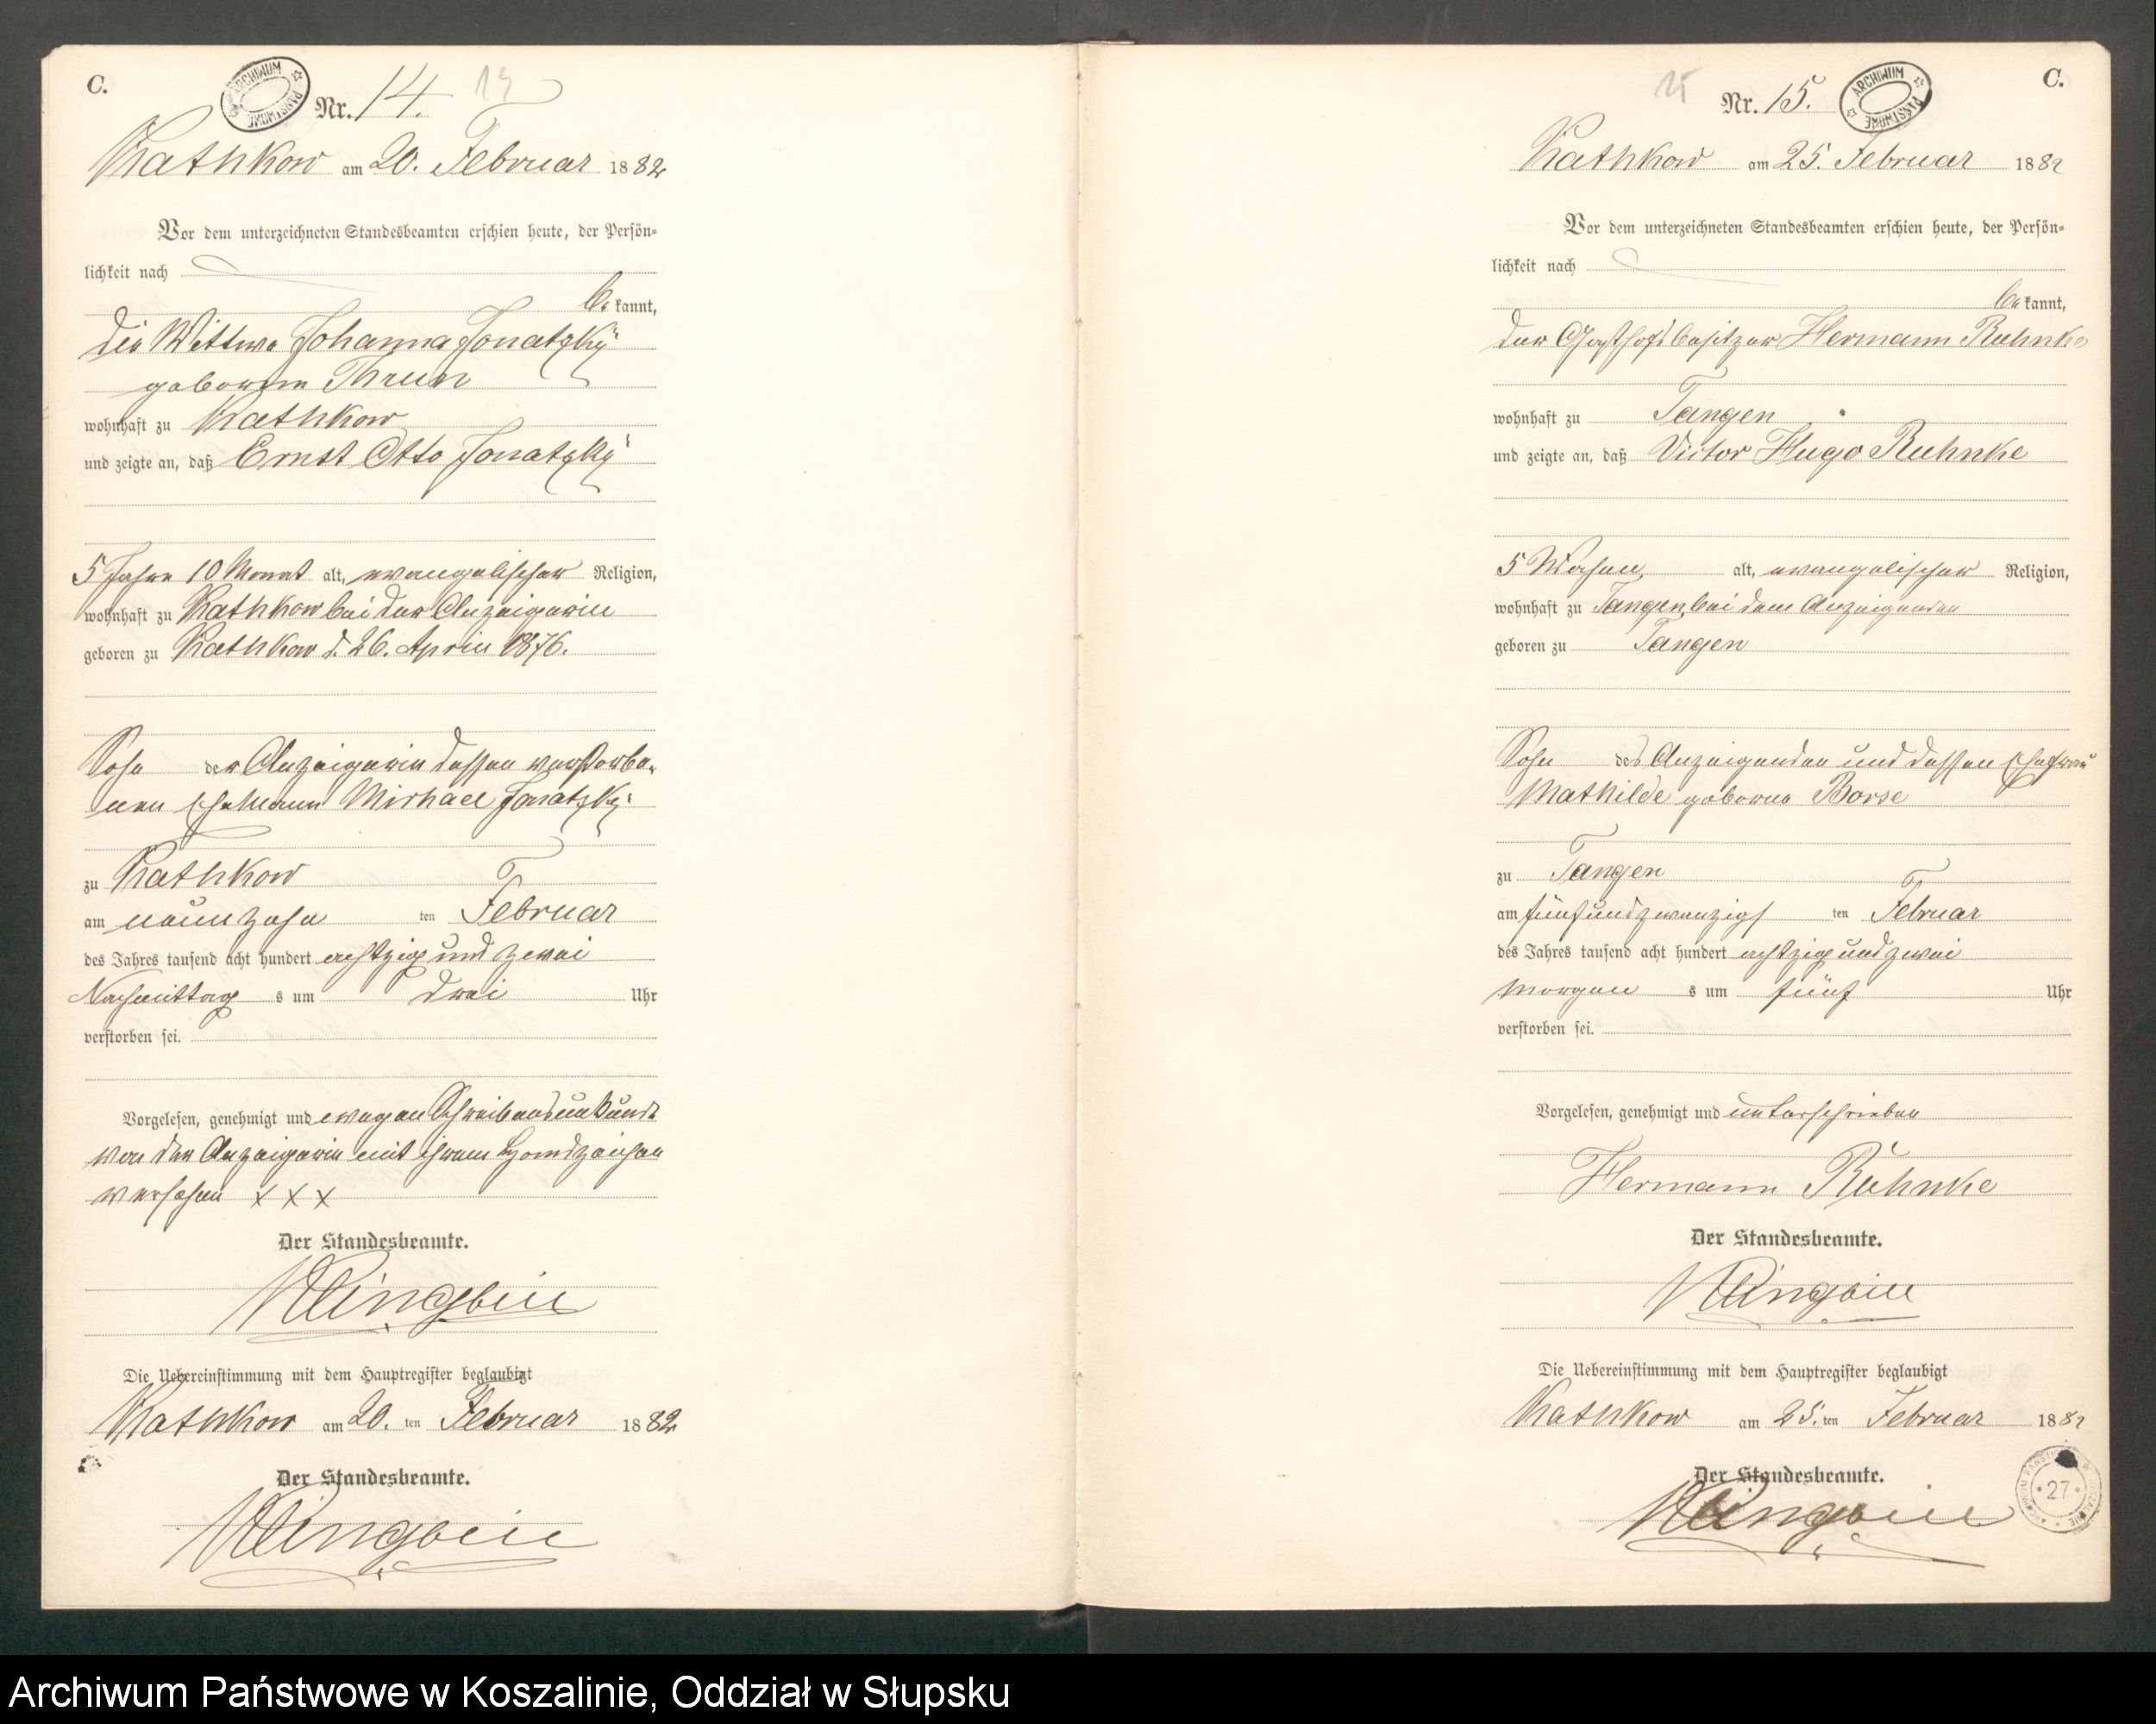 C.
ARCHIWUM PAŃSTWOWE
Nr. 14. 14
Kathkow am 20. Februar 1882
Vor dem unterzeichneten Standesbeamten erschien heute, der Persön-
lichkeit nach
be kannt,
die Wittwe Johanna Jonatzky
geborene Thrun
wohnhaft zu Kathkow
und zeigte an, daß Ernst Otto Jonatzky
5 Jahre 10 Monat alt, evangelischer Religion,
wohnhaft zu Kathkow bei der Anzeigerin
geboren zu Kathkow d. 26. April 1876.
Sohn der Anzeigerin dessen verstorbe-
nen Ehemann Michael Jonatzky
zu Kathkow
am neunzehn ten Februar
des Jahres tausend acht hundert achtzig und zwei
Nachmittag s um drei Uhr
verstorben sei.
Vorgelesen, genehmigt und wegen Schreibensunkunde
von der Anzeigerin mit ihrem Handzeichen
versehen x x x
Der Standesbeamte.
Klingbeil
Die Uebereinstimmung mit dem Hauptregister beglaubigt
Kathkow am 20. ten Februar 1882
Der Standesbeamte.
Klingbeil
C.
15 Nr. 15.
ARCHIWUM PAŃSTWOWE
Kathkow am 25. Februar 1882
Vor dem unterzeichneten Standesbeamten erschien heute, der Persön-
lichkeit nach
be kannt,
der Gasthofsbesitzer Hermann Ruhnke
wohnhaft zu Tangen
und zeigte an, daß Victor Hugo Ruhnke
5 Wochen alt, evangelischer Religion,
wohnhaft zu Tangen bei dem Anzeigenden
geboren zu Tangen
Sohn des Anzeigenden und dessen Ehefrau
Mathilde geborne Borse
zu Tangen
am fünfundzwanzigs ten Februar
des Jahres tausend acht hundert achtzig und zwei
Morgen s um fünf Uhr
verstorben sei.
Vorgelesen, genehmigt und unterschrieben
Hermann Ruhnke
Der Standesbeamte.
Klingbeil
Die Uebereinstimmung mit dem Hauptregister beglaubigt
Kathkow am 25. ten Februar 1882
Der Standesbeamte.
Klingbeil
27
Archiwum Państwowe w Koszalinie, Oddział w Słupsku